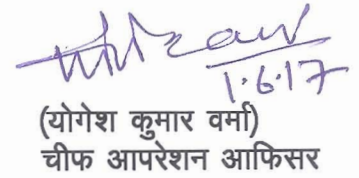 1.6.17
(योगेश कुमार वर्मा)
चीफ आपरेशन आफिसर